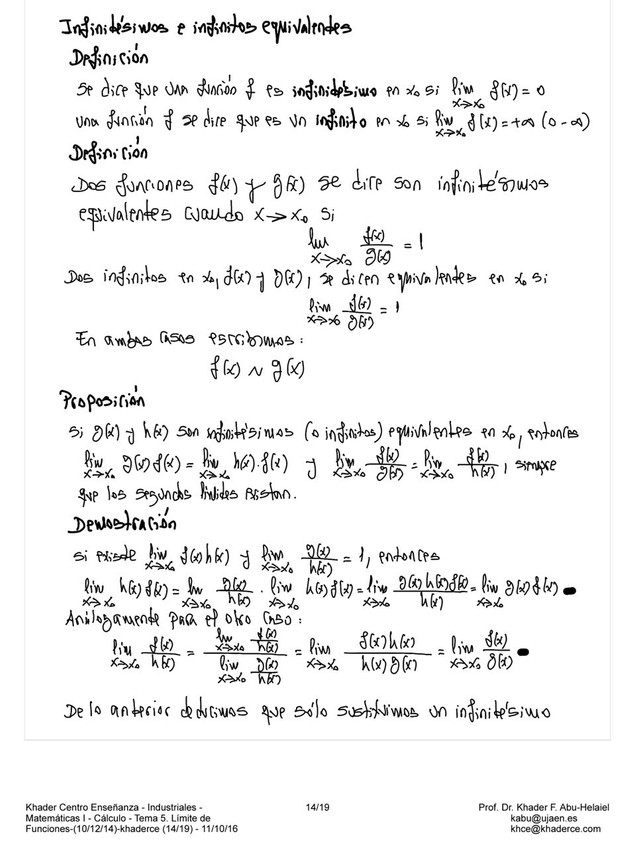 Infinitésimos e infinitos equivalentes
Definición
Se dice que una función f es infinitésimo en x₀ si lim x→x₀ f(x) = 0
una función f se dice que es un infinito en x₀ si lim x→x₀ f(x) = +∞ (o -∞)
Definición
Dos funciones f(x) y g(x) se dice son infinitésimos
equivalentes cuando x→x₀ si
lim x→x₀ f(x)/g(x) = 1
Dos infinitos en x₀, f(x) y g(x), se dicen equivalentes en x₀ si
lim x→x₀ f(x)/g(x) = 1
En ambos casos escribimos:
f(x) ~ g(x)
Proposición
Si g(x) y h(x) son infinitésimos (o infinitos) equivalentes en x₀, entonces
lim x→x₀ g(x) f(x) = lim x→x₀ h(x)·f(x) y lim x→x₀ f(x)/g(x) = lim x→x₀ f(x)/h(x), siempre
que los segundos límites existan.
Demostración
Si existe lim x→x₀ f(x)h(x) y lim x→x₀ g(x)/h(x) = 1, entonces
lim x→x₀ h(x) f(x) = lim x→x₀ g(x)/h(x) · lim x→x₀ h(x) f(x) = lim x→x₀ g(x) h(x) f(x)/h(x) = lim x→x₀ g(x) f(x)
Análogamente para el otro caso:
lim x→x₀ f(x)/h(x) = (lim x→x₀ f(x)/h(x))/(lim x→x₀ g(x)/h(x)) = lim x→x₀ f(x)h(x)/h(x)g(x) = lim x→x₀ f(x)/g(x)
De lo anterior deducimos que sólo sustituimos un infinitésimo
Khader Centro Enseñanza - Industriales -
Matemáticas I - Cálculo - Tema 5. Límite de
Funciones-(10/12/14)-khaderce (14/19) - 11/10/16
14/19
Prof. Dr. Khader F. Abu-Helaiel
kabu@ujaen.es
khce@khaderce.com